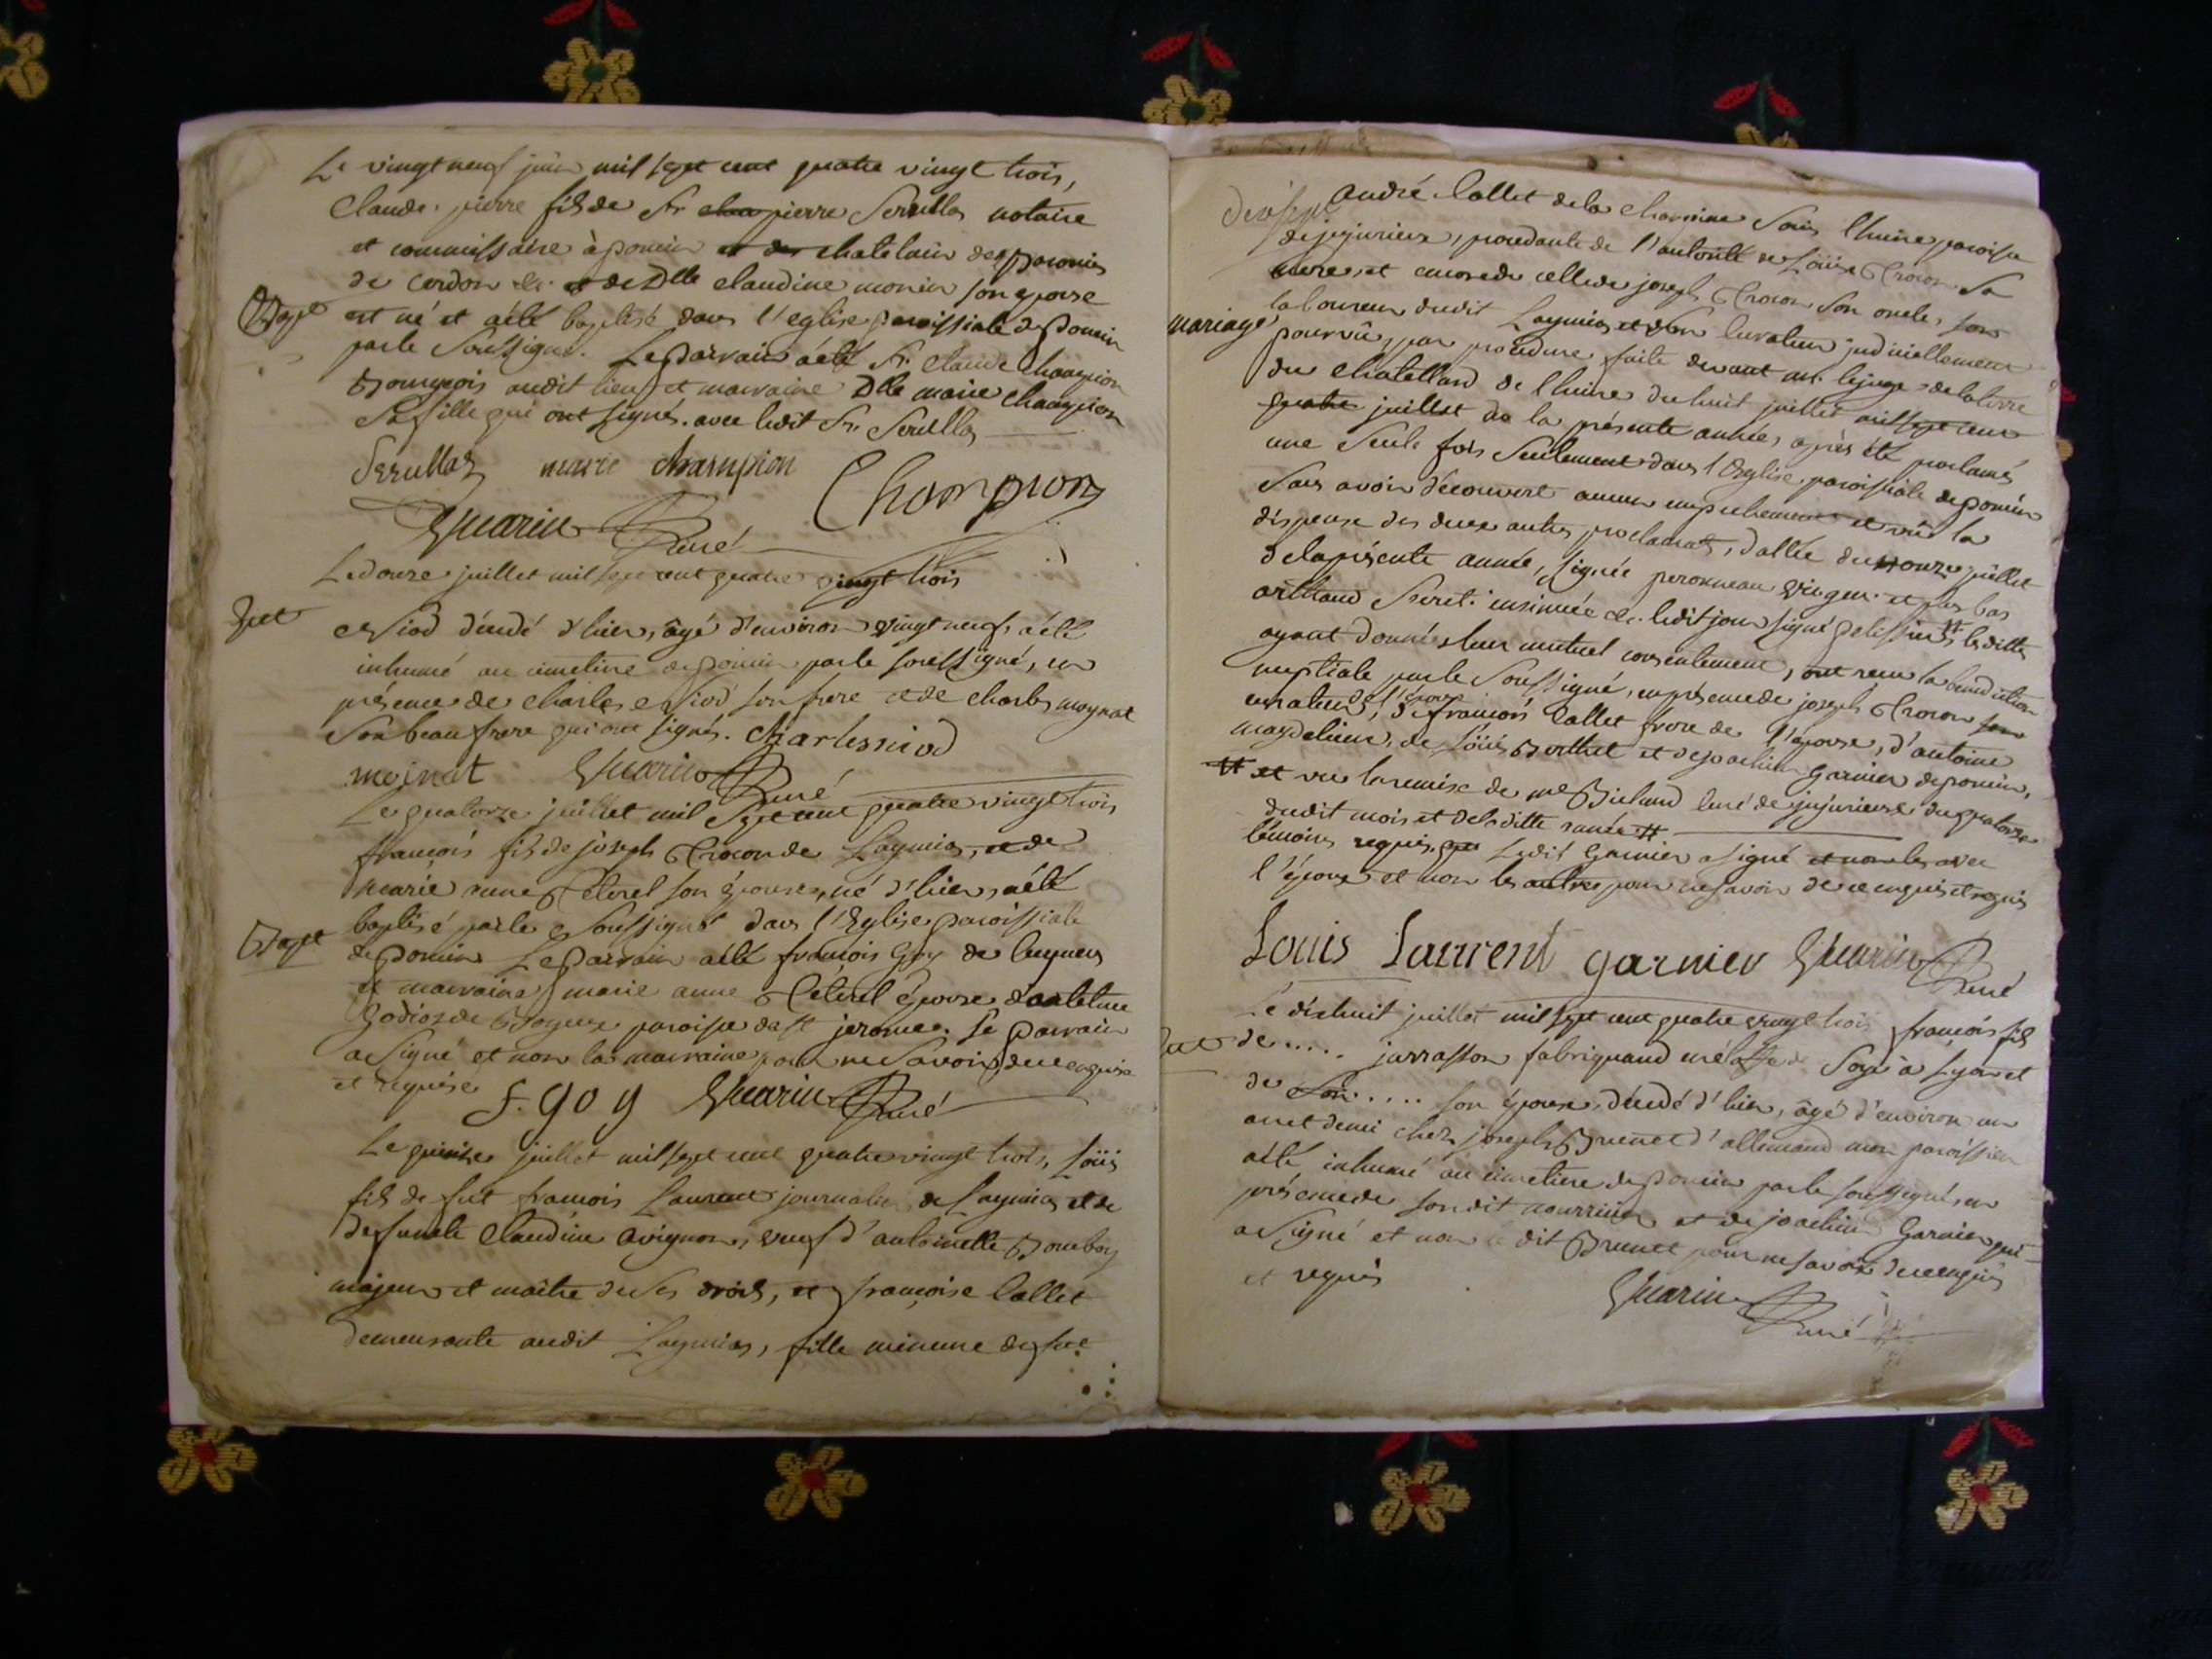 Le vingt neuf juin mil sept cent quatre vingt trois,
Claude pierre fils de Sr. pierre Serullas notaire
et commissaire à poncin chatelain des paroisses
de cerdon &c. et de Dlle claudine monin son epouse
Bapt
est né et a été baptisé dans l'eglise paroissiale de poncin
par le soussigné. Le parrain a été Sr. Claude Champion
Bourgeois audit lieu et marraine Dlle marie Champion
sa fille qui ont signés avec ledit Sr. Serullas
Serullaz marie champion Champion
Guarin Curé
Le douze juillet mil sept cent quatre vingt trois
décédé d'hier, âgé d'environ vingt neuf, a été
inhumé au cimetiere de poncin par le soussigné, en
présence de Charles Niod son frere et de Charles moynat
son beau frere qui ont signés. Charles niod
moinat Guarin Curé
Le quatorze juillet mil sept cent quatre vingt trois
françois fils de joseph Crocon de Leymiat, et de
marie anne son épouse, né d'hier, a été
Bapt
baptisé par le soussigné dans l'Eglise paroissiale
de poncin Le parrain a été françois Goy de
et marraine marie anne épouse
de paroisse de St jerome. Le parrain
a signé et non la marraine pour ne savoir de ce enquise
et requise
f. goy Guarin Curé
Le quinze juillet mil sept cent quatre vingt trois, Loüis
fils de fut françois Laurent journalier de Leymiat et de
defuncte Claudine Avignon, veuf d'antoinette Bourbon
majeur et maître de ses droits, et françoise Collet
demeurante audit Leymiat, fille mineure de fut
dixsept
andré Collet de la Charmine sous l'huire paroisse
de jujurieux, procedante de l'autorité de Loüise Crocon sa
mere, et encore de celle de joseph Crocon son oncle, son
mariage
laboureur dudit Leymiat curateur judiciellement
pourvû, par procedure faite devant mr. le juge de la terre
du Chatellard de l'huire du huit juillet mil sept cent
quatre juillet de la présente année, après été proclamés
une seule fois seulement dans l'Eglise paroissiale de poncin
sans avoir découvert aucun empechement et vû la
dispense des deux autres proclamats, dattée du onze juillet
de la présente année, signée peronneau vic gen. et plus bas
secret. insinuée &c. ledit jour signé les dittes
ayant donnés leur mutuel consentement, ont reçu la benediction
nuptiale par le soussigné, en présence de joseph Crocon
curateur de l'épouse, de françois Collet frere de l'épouse, d'antoine
magdelein, de Loüis Berthet et de joachim Garnier de poncin,
et vu la remise de me Curé de jujurieux du quatorze
dudit mois et de laditte année
témoins requis, Ledit Garnier a signé avec
l'époux et non les autres pour ne savoir de ce enquis et requis
Louis Laurent garnier Guarin Curé
Le dixhuit juillet mil sept cent quatre vingt trois françois fils
de ..... jarrasson fabriquand de Soye à Lyon et
de ..... son épouse, décédé d'hier, âgé d'environ un
an et demi chez joseph Brunet d'allemand mon paroissien
a été inhumé au cimetiere de poncin par le soussigné, en
présence de sondit nourricier et de joachim Garnier qui
a signé et non le dit Brunet pour ne savoir de ce enquis
et requis
Guarin Curé